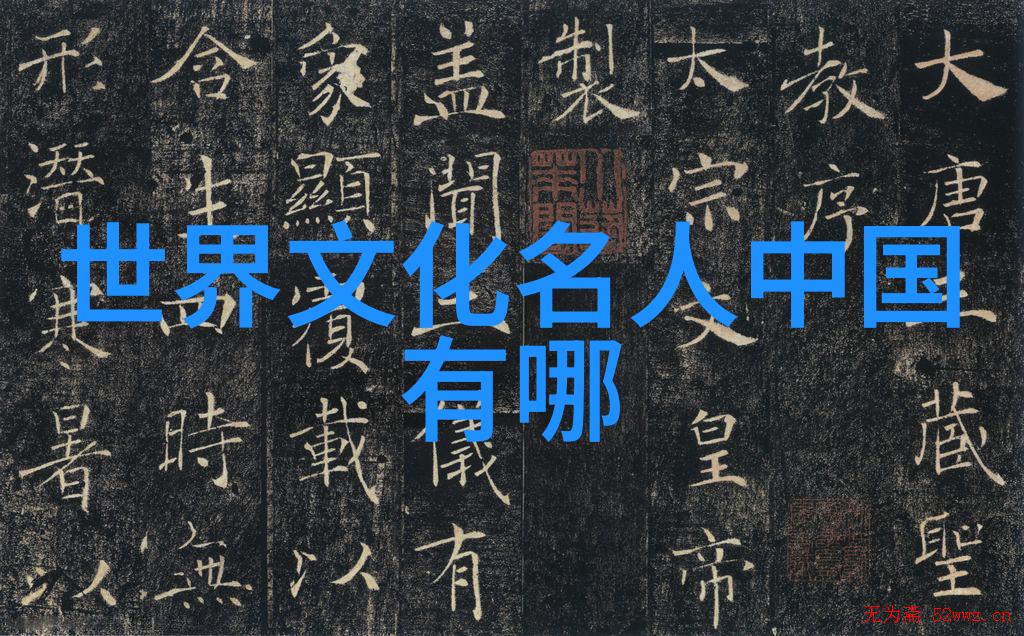 世界文化名人中国
有哪
大唐三藏聖
教序
太宗文皇帝
製
盖聞二儀有
象顯覆載以
含生四時無
形潛寒暑以
无为斋 52wwz.cn